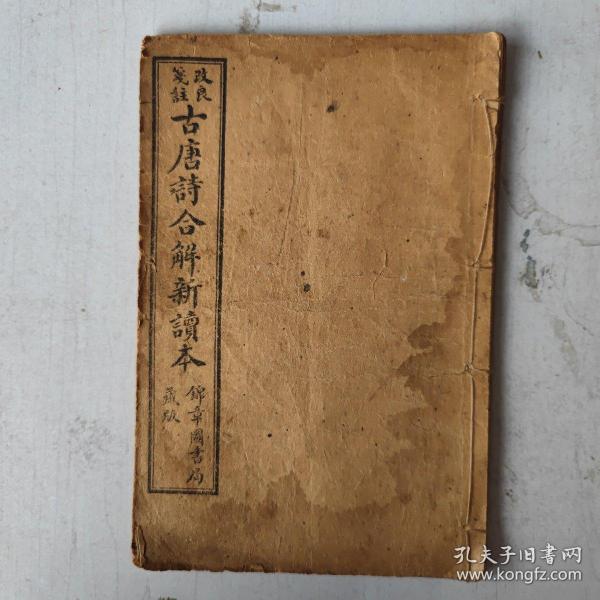 改良
箋註
古唐詩合解新讀本
錦章圖書局
藏版
孔夫子旧书网
www.kongfz.com